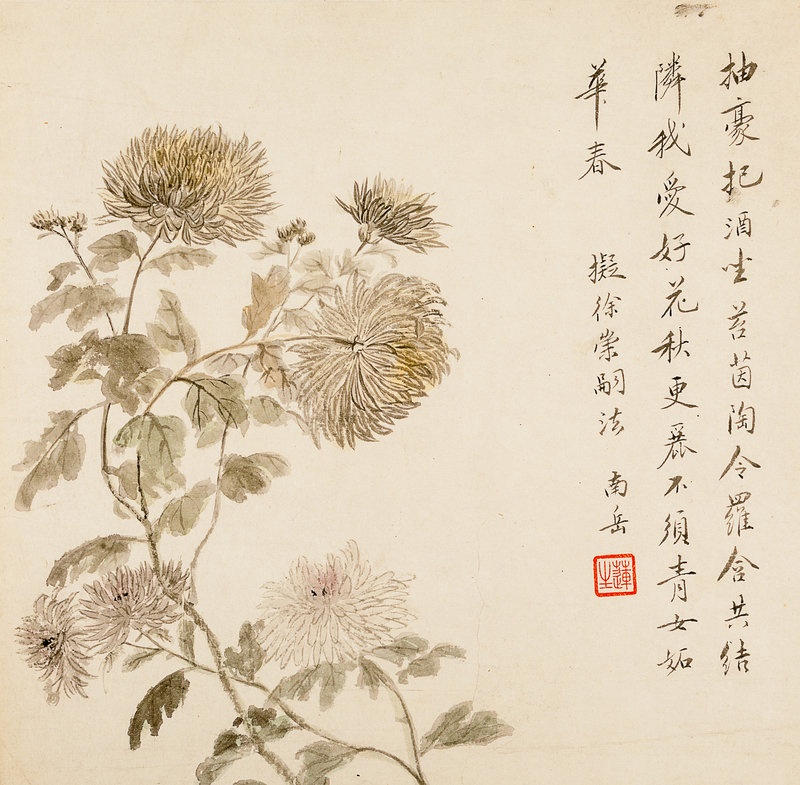 抽豪把酒坐苔茵陶令羅含共結
隣我愛好花秋更麗不須青女妬
華春
擬徐崇嗣法
南岳
蓮生